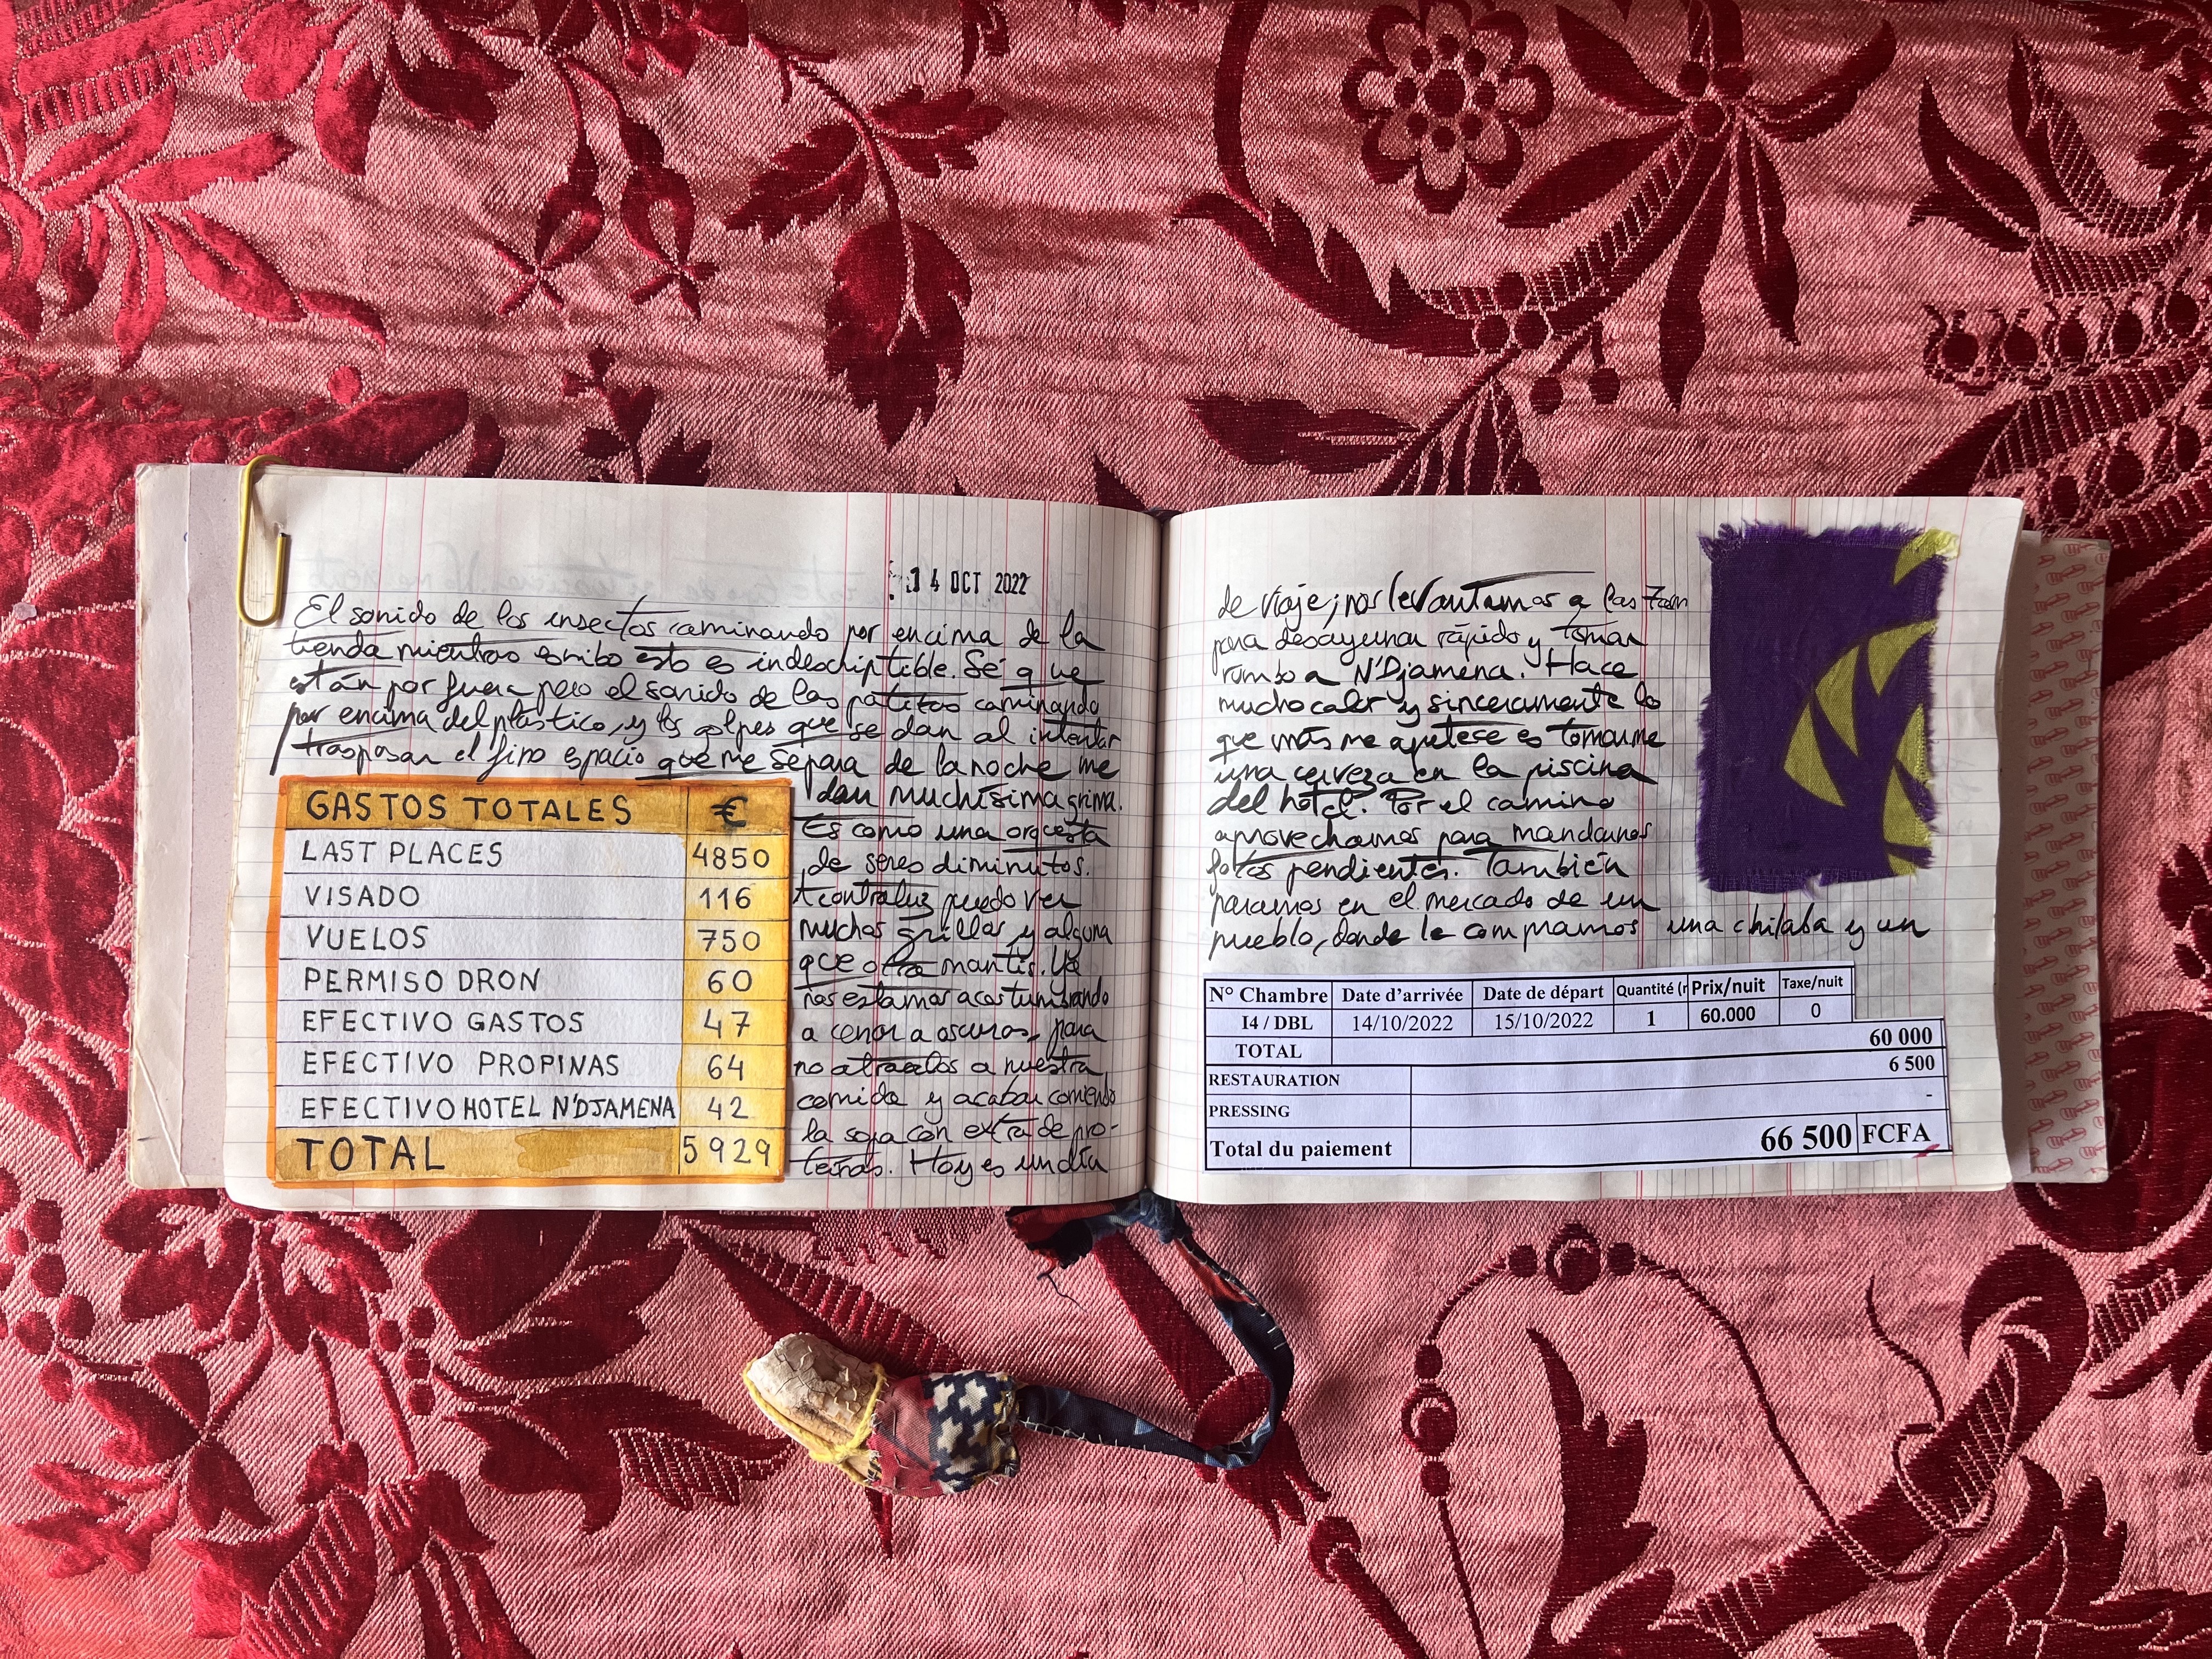 14 OCT 2022
El sonido de los insectos caminando por encima de la
tienda mientras escribo esto es indescriptible. Sé que
están por fuera pero el sonido de las patitas caminando
por encima del plástico, y los golpes que se dan al intentar
traspasar el fino espacio que me separa de la noche me
dan muchísima grima.
Es como una orquesta
de seres diminutos.
A contraluz puedo ver
muchos grillos y alguna
que otra mantis. Ya
nos estamos acostumbrando
a cenar a oscuras, para
no atraerlos a nuestra
comida y acabar comiendo
la sopa con extra de pro-
teínas. Hoy es un día
GASTOS TOTALES €
LAST PLACES 4850
VISADO 116
VUELOS 750
PERMISO DRON 60
EFECTIVO GASTOS 47
EFECTIVO PROPINAS 64
EFECTIVO HOTEL N'DJAMENA 42
TOTAL 5929
de viaje; nos levantamos a las 7am
para desayunar rápido y tomar
rumbo a N'Djamena. Hace
mucho calor y sinceramente lo
que más me apetece es tomarme
una cerveza en la piscina
del hotel. Por el camino
aprovechamos para mandarnos
fotos pendientes. También
paramos en el mercado de un
pueblo, donde le compramos una chilaba y un
N° Chambre Date d'arrivée Date de départ Quantité (r Prix/nuit Taxe/nuit
I4 / DBL 14/10/2022 15/10/2022 1 60.000 0
TOTAL 60 000
RESTAURATION 6 500
PRESSING -
Total du paiement 66 500 FCFA